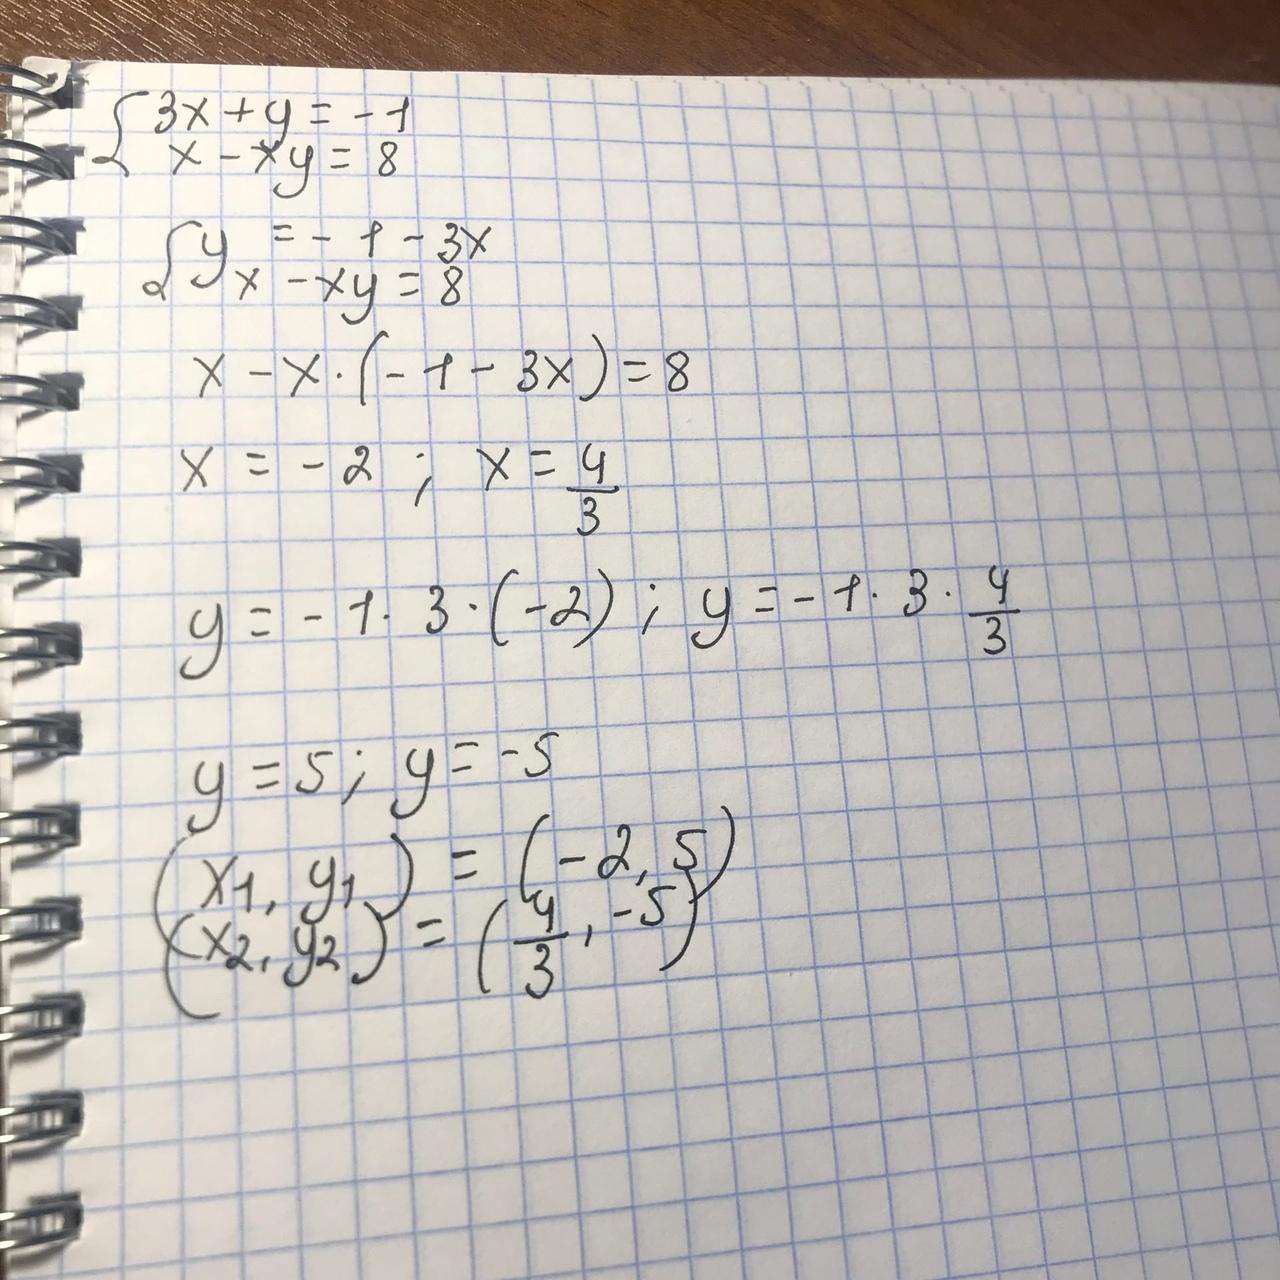 {3x+y=-1
x-xy=8
{y=-1-3x
x-xy=8
x-x·(-1-3x)=8
x=-2; x=4/3
y=-1·3·(-2); y=-1·3·4/3
y=5; y=-5
(x1, y1)=(-2, 5)
(x2, y2)=(4/3, -5)